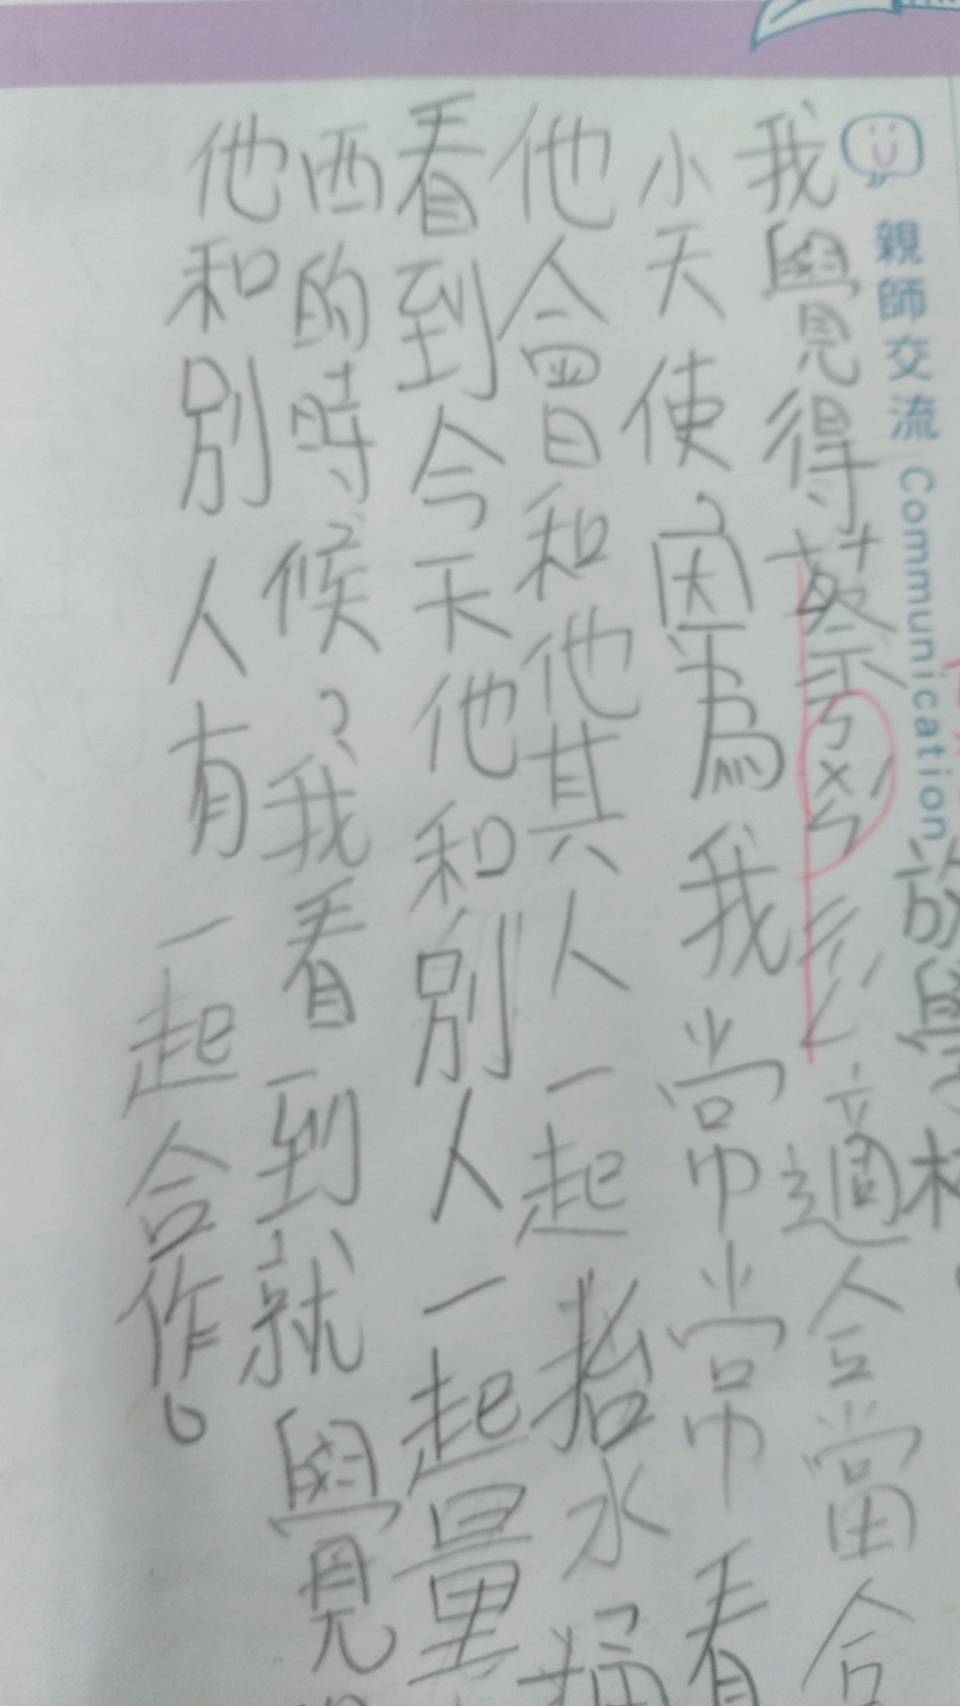 親師交流 Communication
放學
我覺得蔡ㄢㄨㄢˊ彣適合當合
小天使,因為我常常常常看
他會和他其人一起抬水桶
看到今天他和別人一起量
西的時候,我看到就覺
他和別人有一起合作。